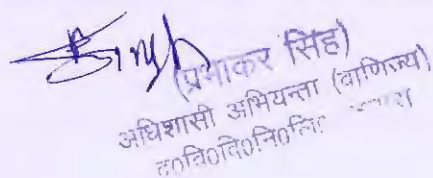 (प्रभाकर सिंह)
अधिशासी अभियन्ता (वाणिज्य)
द०वि०वि०नि०लि०